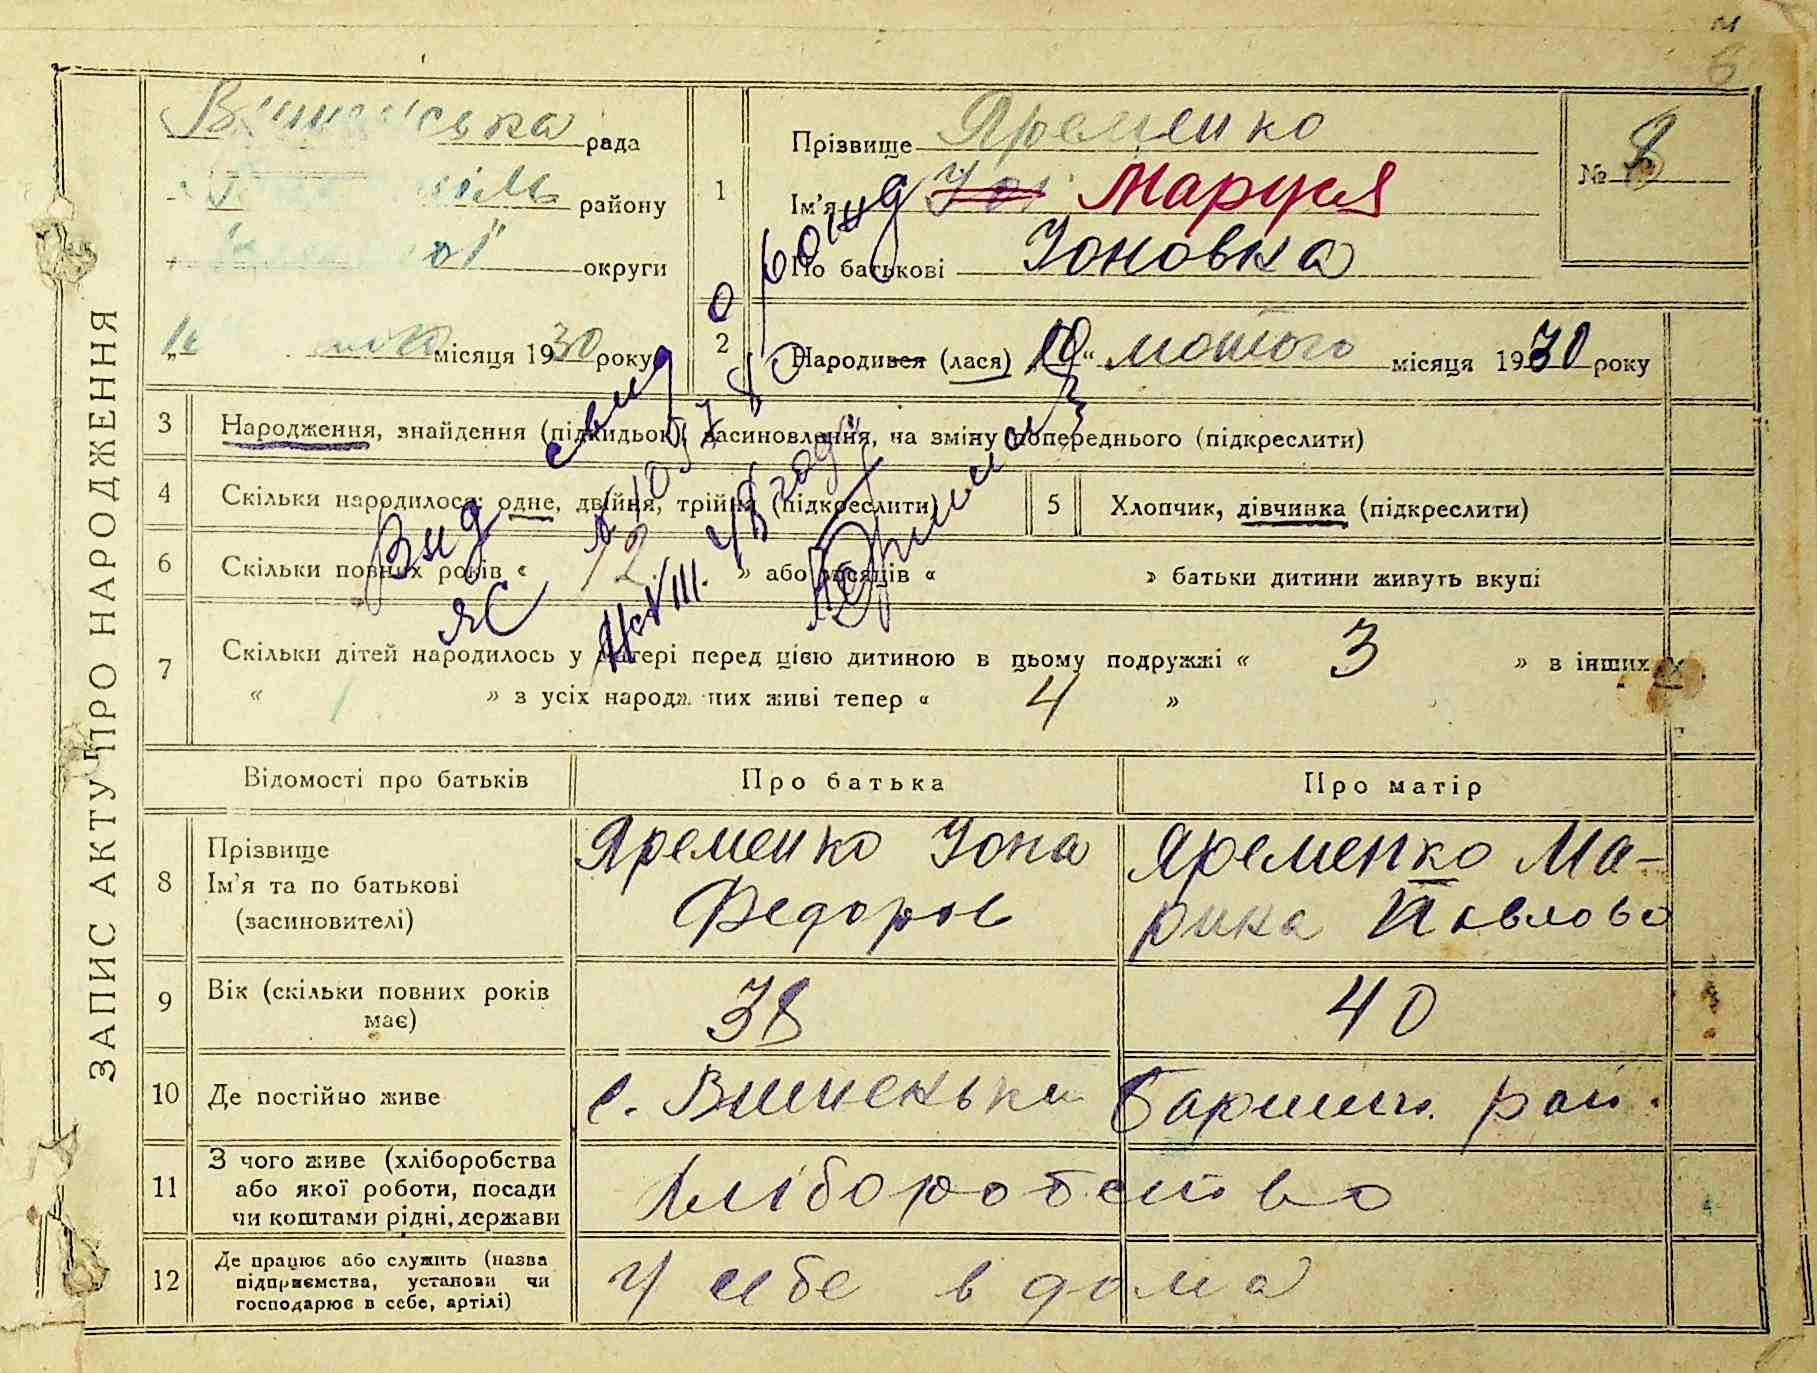 ЗАПИС АКТУ ПРО НАРОДЖЕННЯ
рада
району
округи
місяця 1930 року
1
Прізвище Яременко
Ім'я Маруся
По батькові Іоновна
№ 8
2
Народився (лася) 10 " лютого місяця 1930 року
3 Народження, знайдення (підкидьок), засиновлення, на зміну попереднього (підкреслити)
4 Скільки народилося: одне, двійня, трійня (підкреслити)
5 Хлопчик, дівчинка (підкреслити)
6 Скільки повних років « 12 » або місяців « » батьки дитини живуть вкупі
7 Скільки дітей народилось у матері перед цією дитиною в цьому подружжі « 3 » в інших
« 1 » з усіх народж. них живі тепер « 4 »
Вид
свид
ЯС №
VIII. 48 года
Відомості про батьків
Про батька
Про матір
8 Прізвище
Ім'я та по батькові
(засиновителі)
Яременко Іона
Федоров
Яременко Ма-
рина Павлово
9 Вік (скільки повних років
має)
38
40
10 Де постійно живе
с. Вишеньки Баришів. рай.
11 З чого живе (хліборобства
або якої роботи, посади
чи коштами рідні, держави
Хліборобство
12 Де працює або служить (назва
підприємства, установи чи
господарює в себе, артілі)
У себе в дома